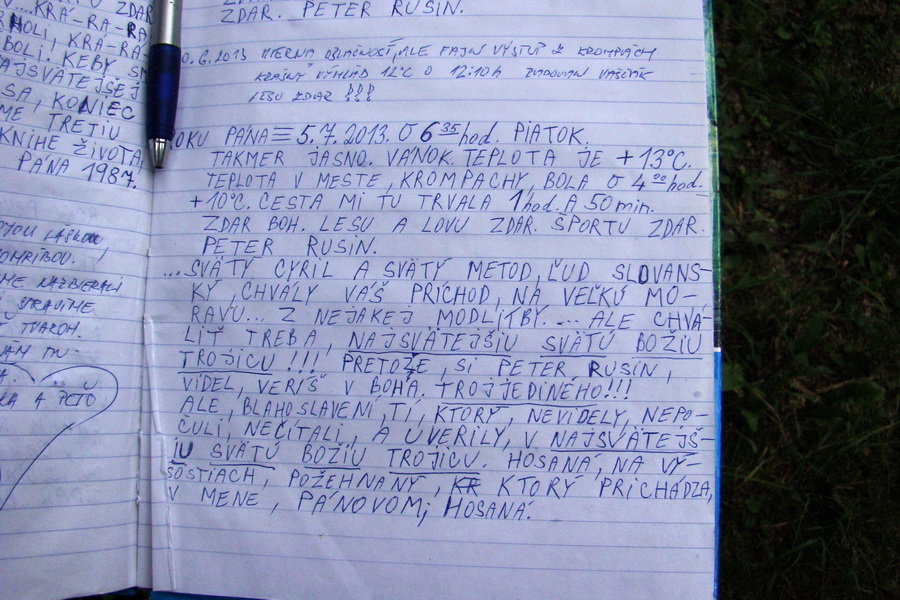 V...KRÁ-RA-RA
HOLI, KRÁ-RÁ
BOLI. KEBY
AJSVÄTEJŠEJ
SA, KONIEC
ME TRETIU
KNIHE ŽIVOTA
PÁNA 1987.
ZDAR. PETER RUSIN.
0.6.2013 MIERNA OBLAČNOSŤ, ALE FAJN VÝSTUP Z KROMPÁCH
KRÁSNY VÝHĽAD 12°C O 12:10h
LESU ZDAR !!!
ROKU PÁNA ≡ 5.7.2013. O 6 35 hod. PIATOK.
TAKMER JASNO. VÁNOK. TEPLOTA JE +13°C.
TEPLOTA V MESTE, KROMPACHY, BOLA O 4 00 hod.
+10°C. CESTA MI TU TRVALA 1 hod. A 50 min.
ZDAR BOH. LESU A LOVU ZDAR. ŠPORTU ZDAR.
PETER RUSIN.
...SVÄTÝ CYRIL A SVÄTÝ METOD, ĽUD SLOVANS-
KÝ, CHVÁLY VÁŠ PRÍCHOD, NA VEĽKÚ MO-
RAVU... Z NEJAKEJ MODLITBY. ... ALE CHVÁ-
LIŤ TREBA, NAJSVÄTEJŠIU SVÄTÚ BOŽIU
TROJICU !!! PRETOŽE, SI PETER RUSIN,
VIDEL, VERÍŠ V BOHA. TROJJEDINÉHO!!!
ALE, BLAHOSLAVENÍ, TÍ, KTORÝ, NEVIDELY, NEPO-
ČULI, NEČÍTALI, A UVERILY, V NAJSVÄTEJŠ-
IU SVÄTÚ BOŽIU TROJICU. HOSANÁ, NA VÝ-
SOSTIACH, POŽEHNANÝ, KR KTORÝ PRICHÁDZA,
V MENE, PÁNOVOM; HOSANÁ.